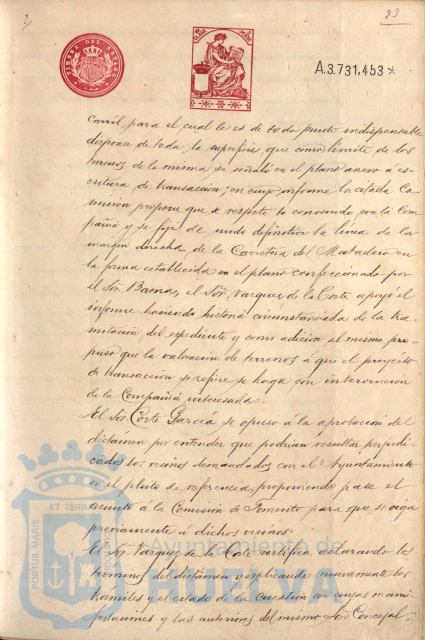 23
TIMBRE DEL ESTADO
A.3.731,453*
carril para el cual le es de todo punto indispensable
disponer de toda la superficie que como límite de los
terrenos de la misma se señaló en el plano anexo á es-
critura de transacción; en cuyo informe la citada Co-
misión propone que se respete lo convenido con la Com-
pañia y se fije de modo definitivo la línea de la
margen derecha de la Carretera del Matadero en
la forma establecida en el plano confeccionado por
el Sor. Baena, el Sor. Vazquez de la Corte apoyó el
informe haciendo historia circunstanciada de la tra-
mitación del expediente y como adición al mismo pro-
puso que la valoración de terrenos á que el proyecto
de transacción se refiere se haga con intervención
de la Compañia interesada.
El Sor. Corte García se opuso á la aprobación del
dictamen por entender que podrian resultar perjudi-
cados los vecinos demandados con el Ayuntamiento
en el pleito de referencia, proponiendo pase el
asunto á la Comisión de Fomento para que se oiga
previamente á dichos vecinos.
El Sor. Vazquez de la Corte rectifica aclarando los
terminos del dictamen y esplicando nuevamente los
tramites y el estado de la cuestión á cuyas mani-
festaciones y las anteriores del mismo Sor. Concejal
Ayuntamiento de
HUELVA
PORTUS MARIS
ET TERRAE
CUSTODIA